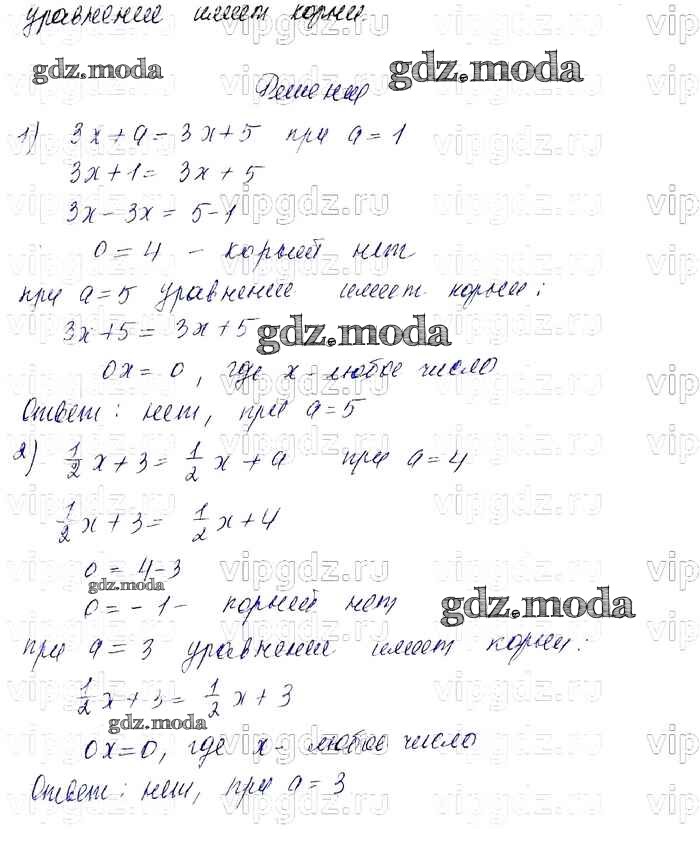 уравнение имеет корни.
gdz.moda
gdz.moda
Решение
1) 3x + a = 3x + 5 при a = 1
3x + 1 = 3x + 5
3x - 3x = 5 - 1
0 = 4 - корней нет
при a = 5 уравнение имеет корни:
3x + 5 = 3x + 5
gdz.moda
0x = 0, где x - любое число
Ответ: нет, при a = 5
2) 1/2 x + 3 = 1/2 x + a при a = 4
1/2 x + 3 = 1/2 x + 4
0 = 4 - 3
gdz.moda
0 = - 1 - корней нет
gdz.moda
при a = 3 уравнение имеет корни:
1/2 x + 3 = 1/2 x + 3
gdz.moda
0x = 0, где x - любое число
Ответ: нет, при a = 3
vipgdz.ru